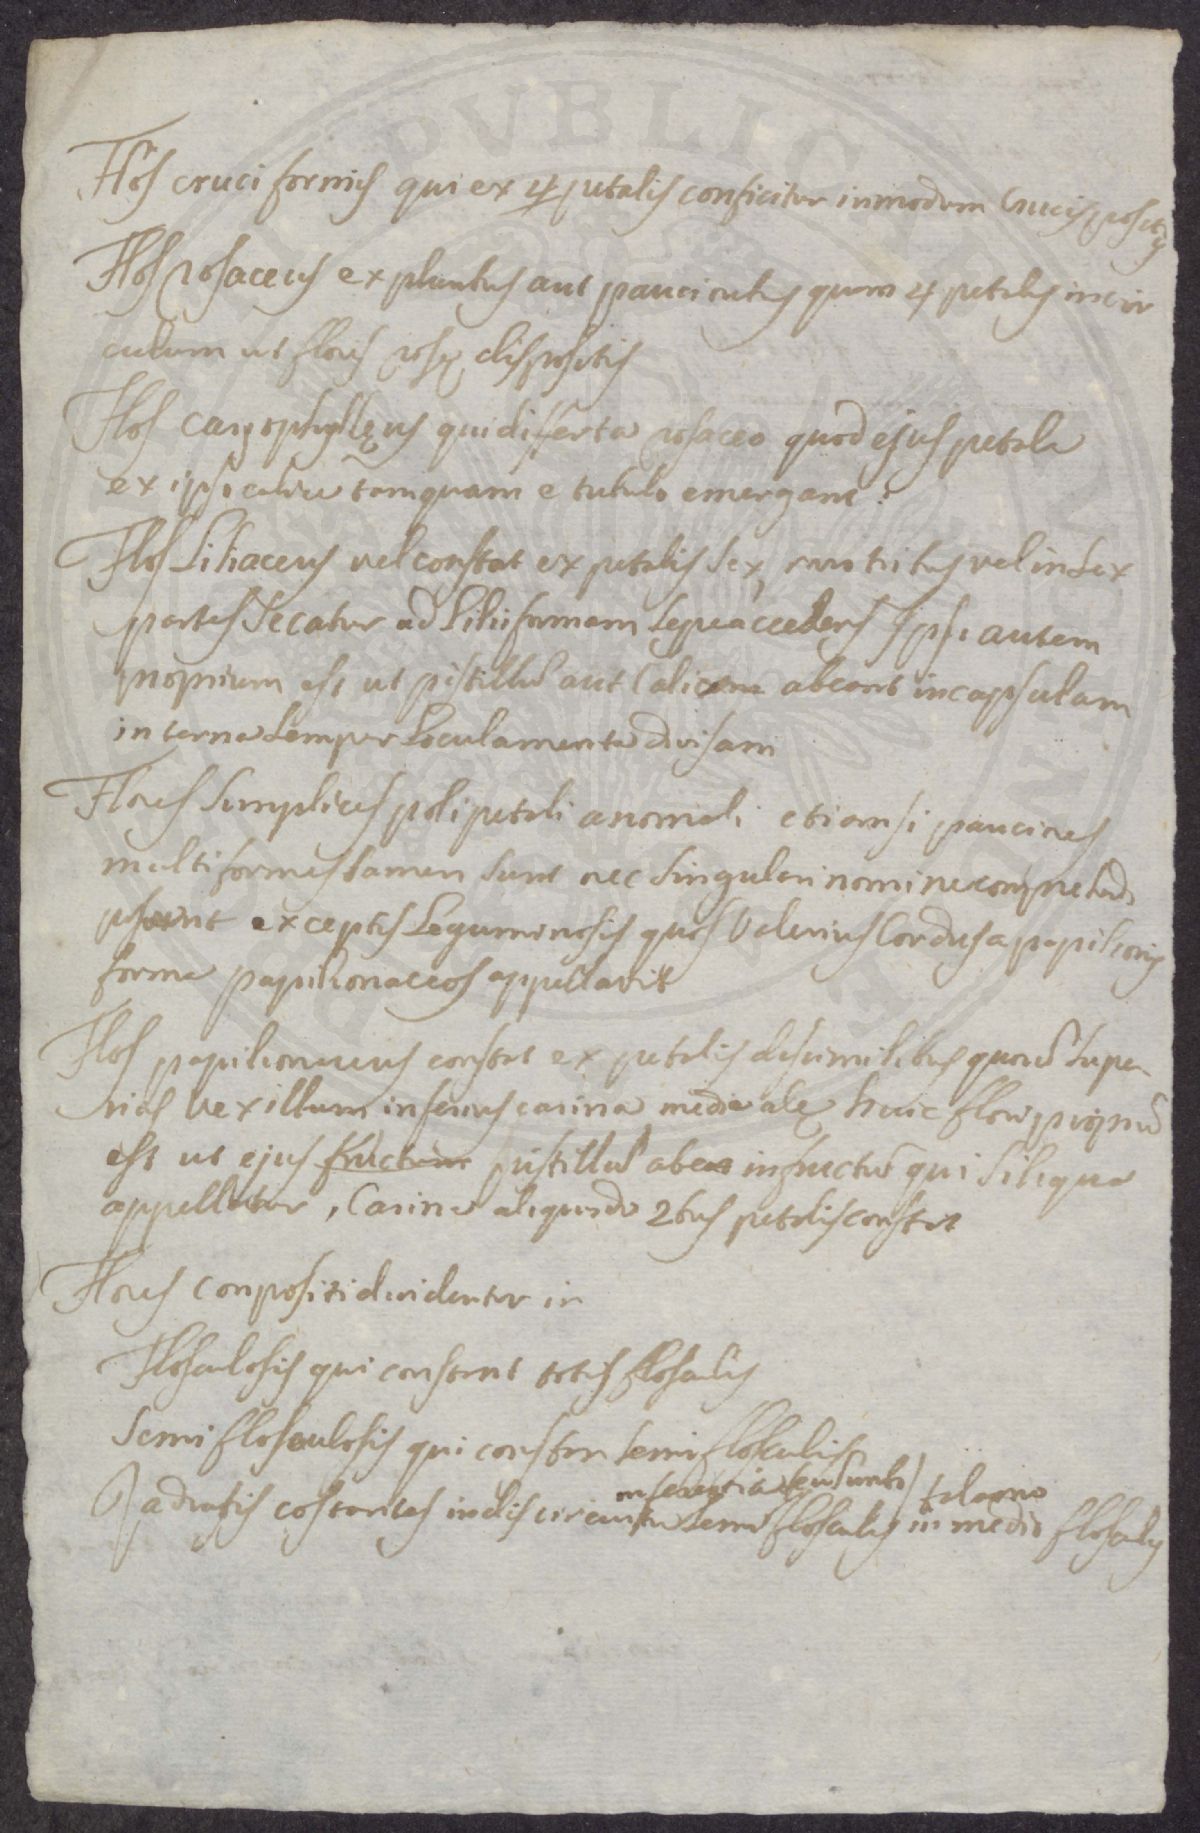 Flos cruciformis qui ex 4 petalis conficitur in modum Crucis positis
Flos rosaceus ex pluribus aut paucioribus quam 4 petalis in cir
culum ut floris rosę dispositis
Flos caryophyllęus qui differt a rosaceo quod ejus petala
ex ipso calice tamquam e tubulo emergant.
Flos Liliaceus vel constat ex petalis sex, aut tribus vel in sex
partes secatur ad Lilii formam sepe accedens Ipsi autem
proprium est ut pistillū aut Calicem abeant in capsulam
in terna semper Loculamenta divisam
Flores simplices polipetali anomali etiamsi pauciores
multiformes tamen sunt nec singulari nomine comprehendi
possunt exceptis Leguminosis quos Valerius Cordus a papilionis
forma papilionaceos appellavit
Flos papilionaceus constat ex petalis dissimilibus quorū supe
rius Vexillum inferius carina media alę huic flori propriū
est ut ejus fructum pistillū abeat in fructū qui siliqua
appellatur, Carina aliquando 2bus petalis constat
Flores conpositi dividentur in
Flosculosis qui constant totis flosculis
Semiflosculosis qui constan semiflosculis
Radiatis costantes in disci circuitu semiflosculis in medio flosculis